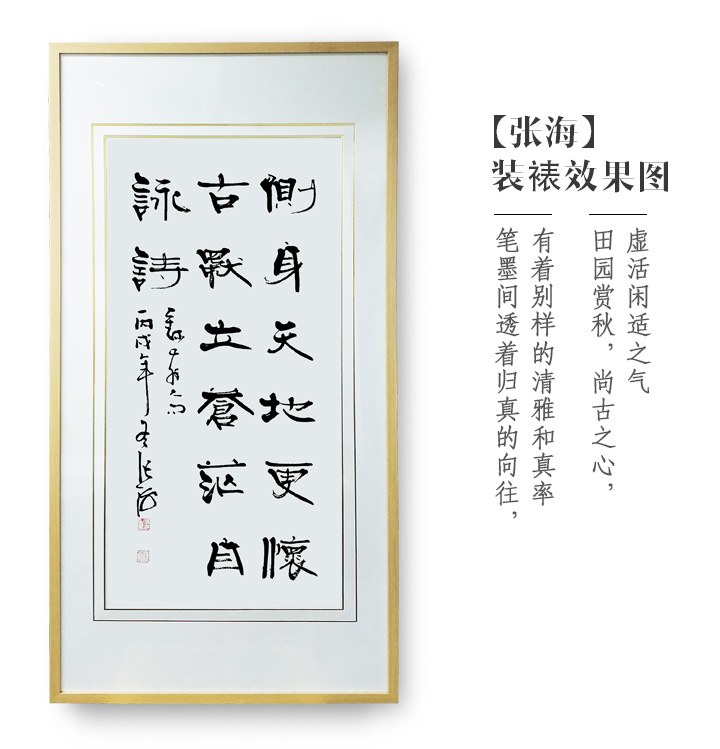 側身天地更懷
古獨立蒼茫自
詠詩
丙戌年冬張海
【张海】
装裱效果图
虚活闲适之气
田园赏秋，尚古之心，
有着别样的清雅和真率
笔墨间透着归真的向往，